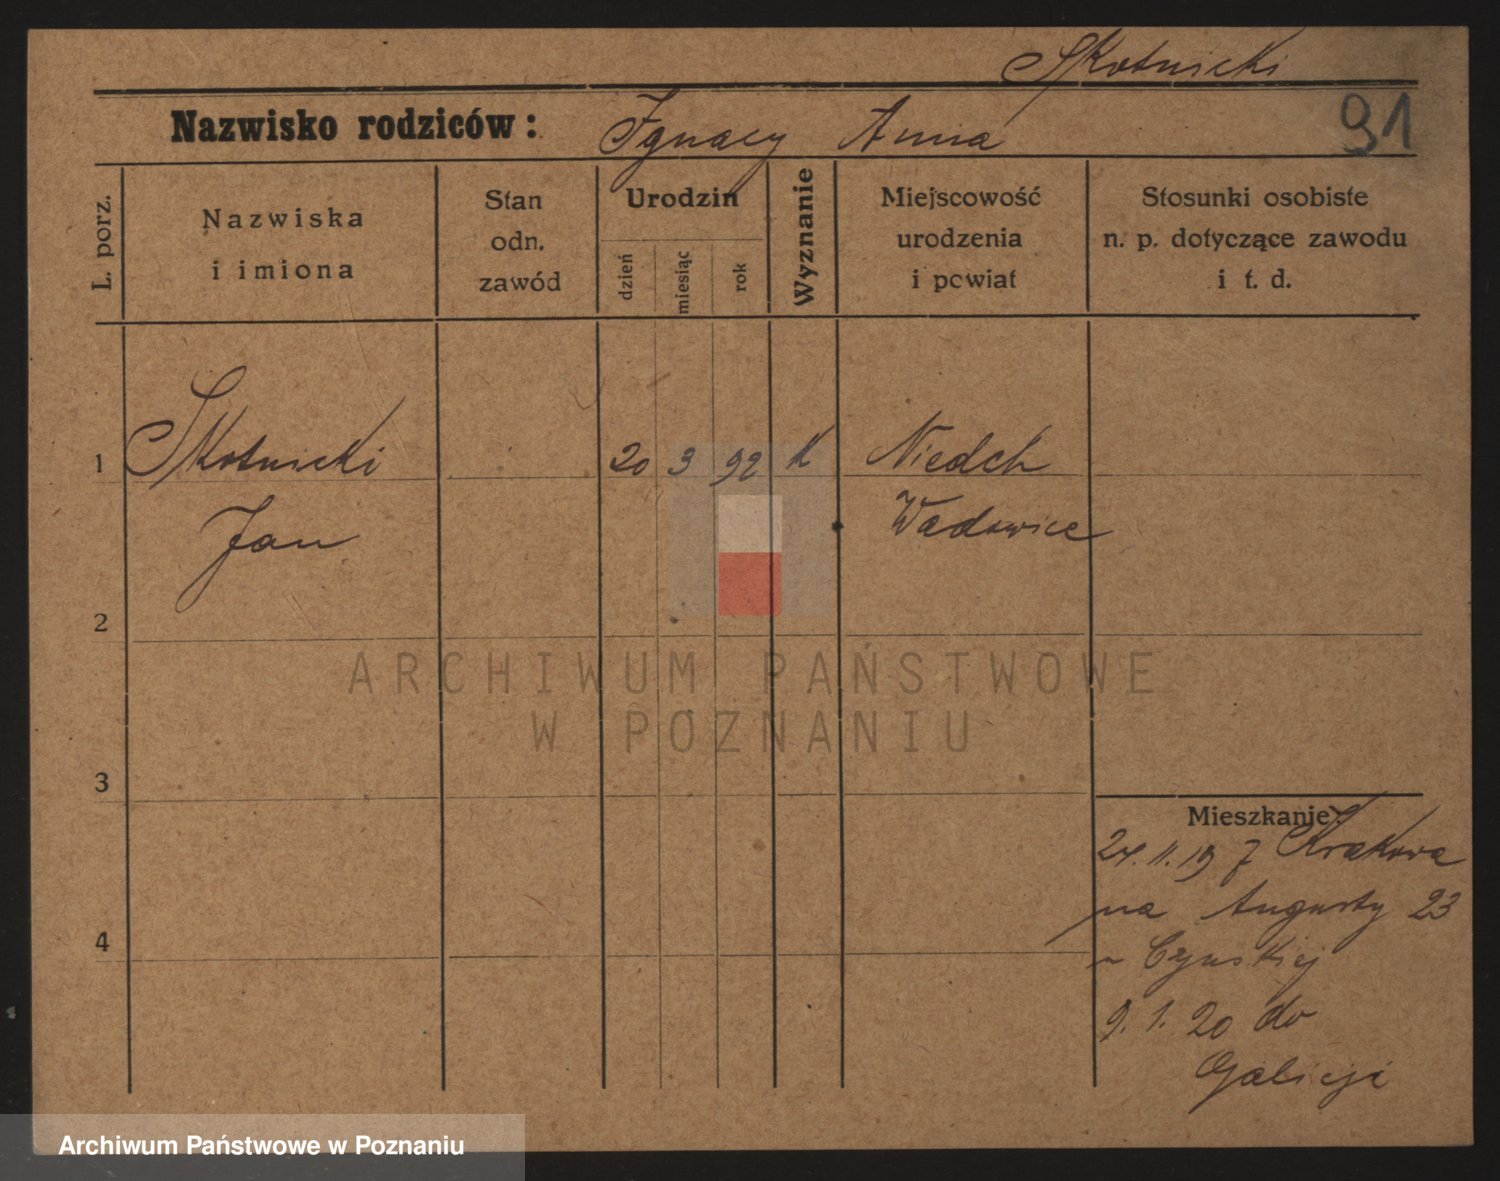 Skotnicki
Nazwisko rodziców: Ignacy Anna
91
L. porz.
Nazwiska
i imiona
Stan
odn.
zawód
Urodzin
dzień
miesiąc
rok
Wyznanie
Miejscowość
urodzenia
i powiat
Stosunki osobiste
n. p. dotyczące zawodu
i t. d.
1 Skotnicki 20 3 92 k Niedch
Jan Wadowice
2
ARCHIWUM PAŃSTWOWE
W POZNANIU
3
Mieszkanie:
24. 11. 19 z Krakowa
na Augusty 23
4
9. 1. 20 do
Galicji
Archiwum Państwowe w Poznaniu